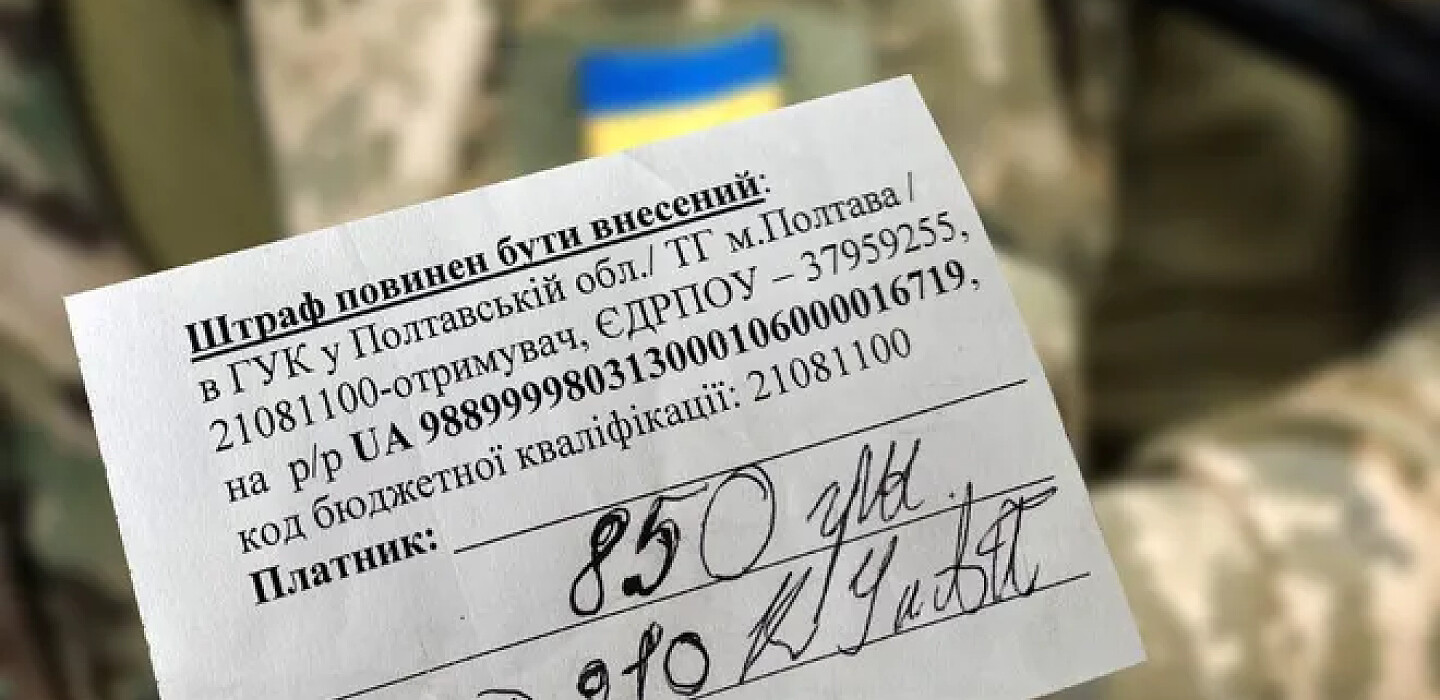 Штраф повинен бути внесений:
в ГУК у Полтавській обл./ ТГ м.Полтава /
21081100-отримувач, ЄДРПОУ – 37959255,
на р/р UA 988999980313000106000016719,
код бюджетної кваліфікації: 21081100
Платник: 850 грн
910